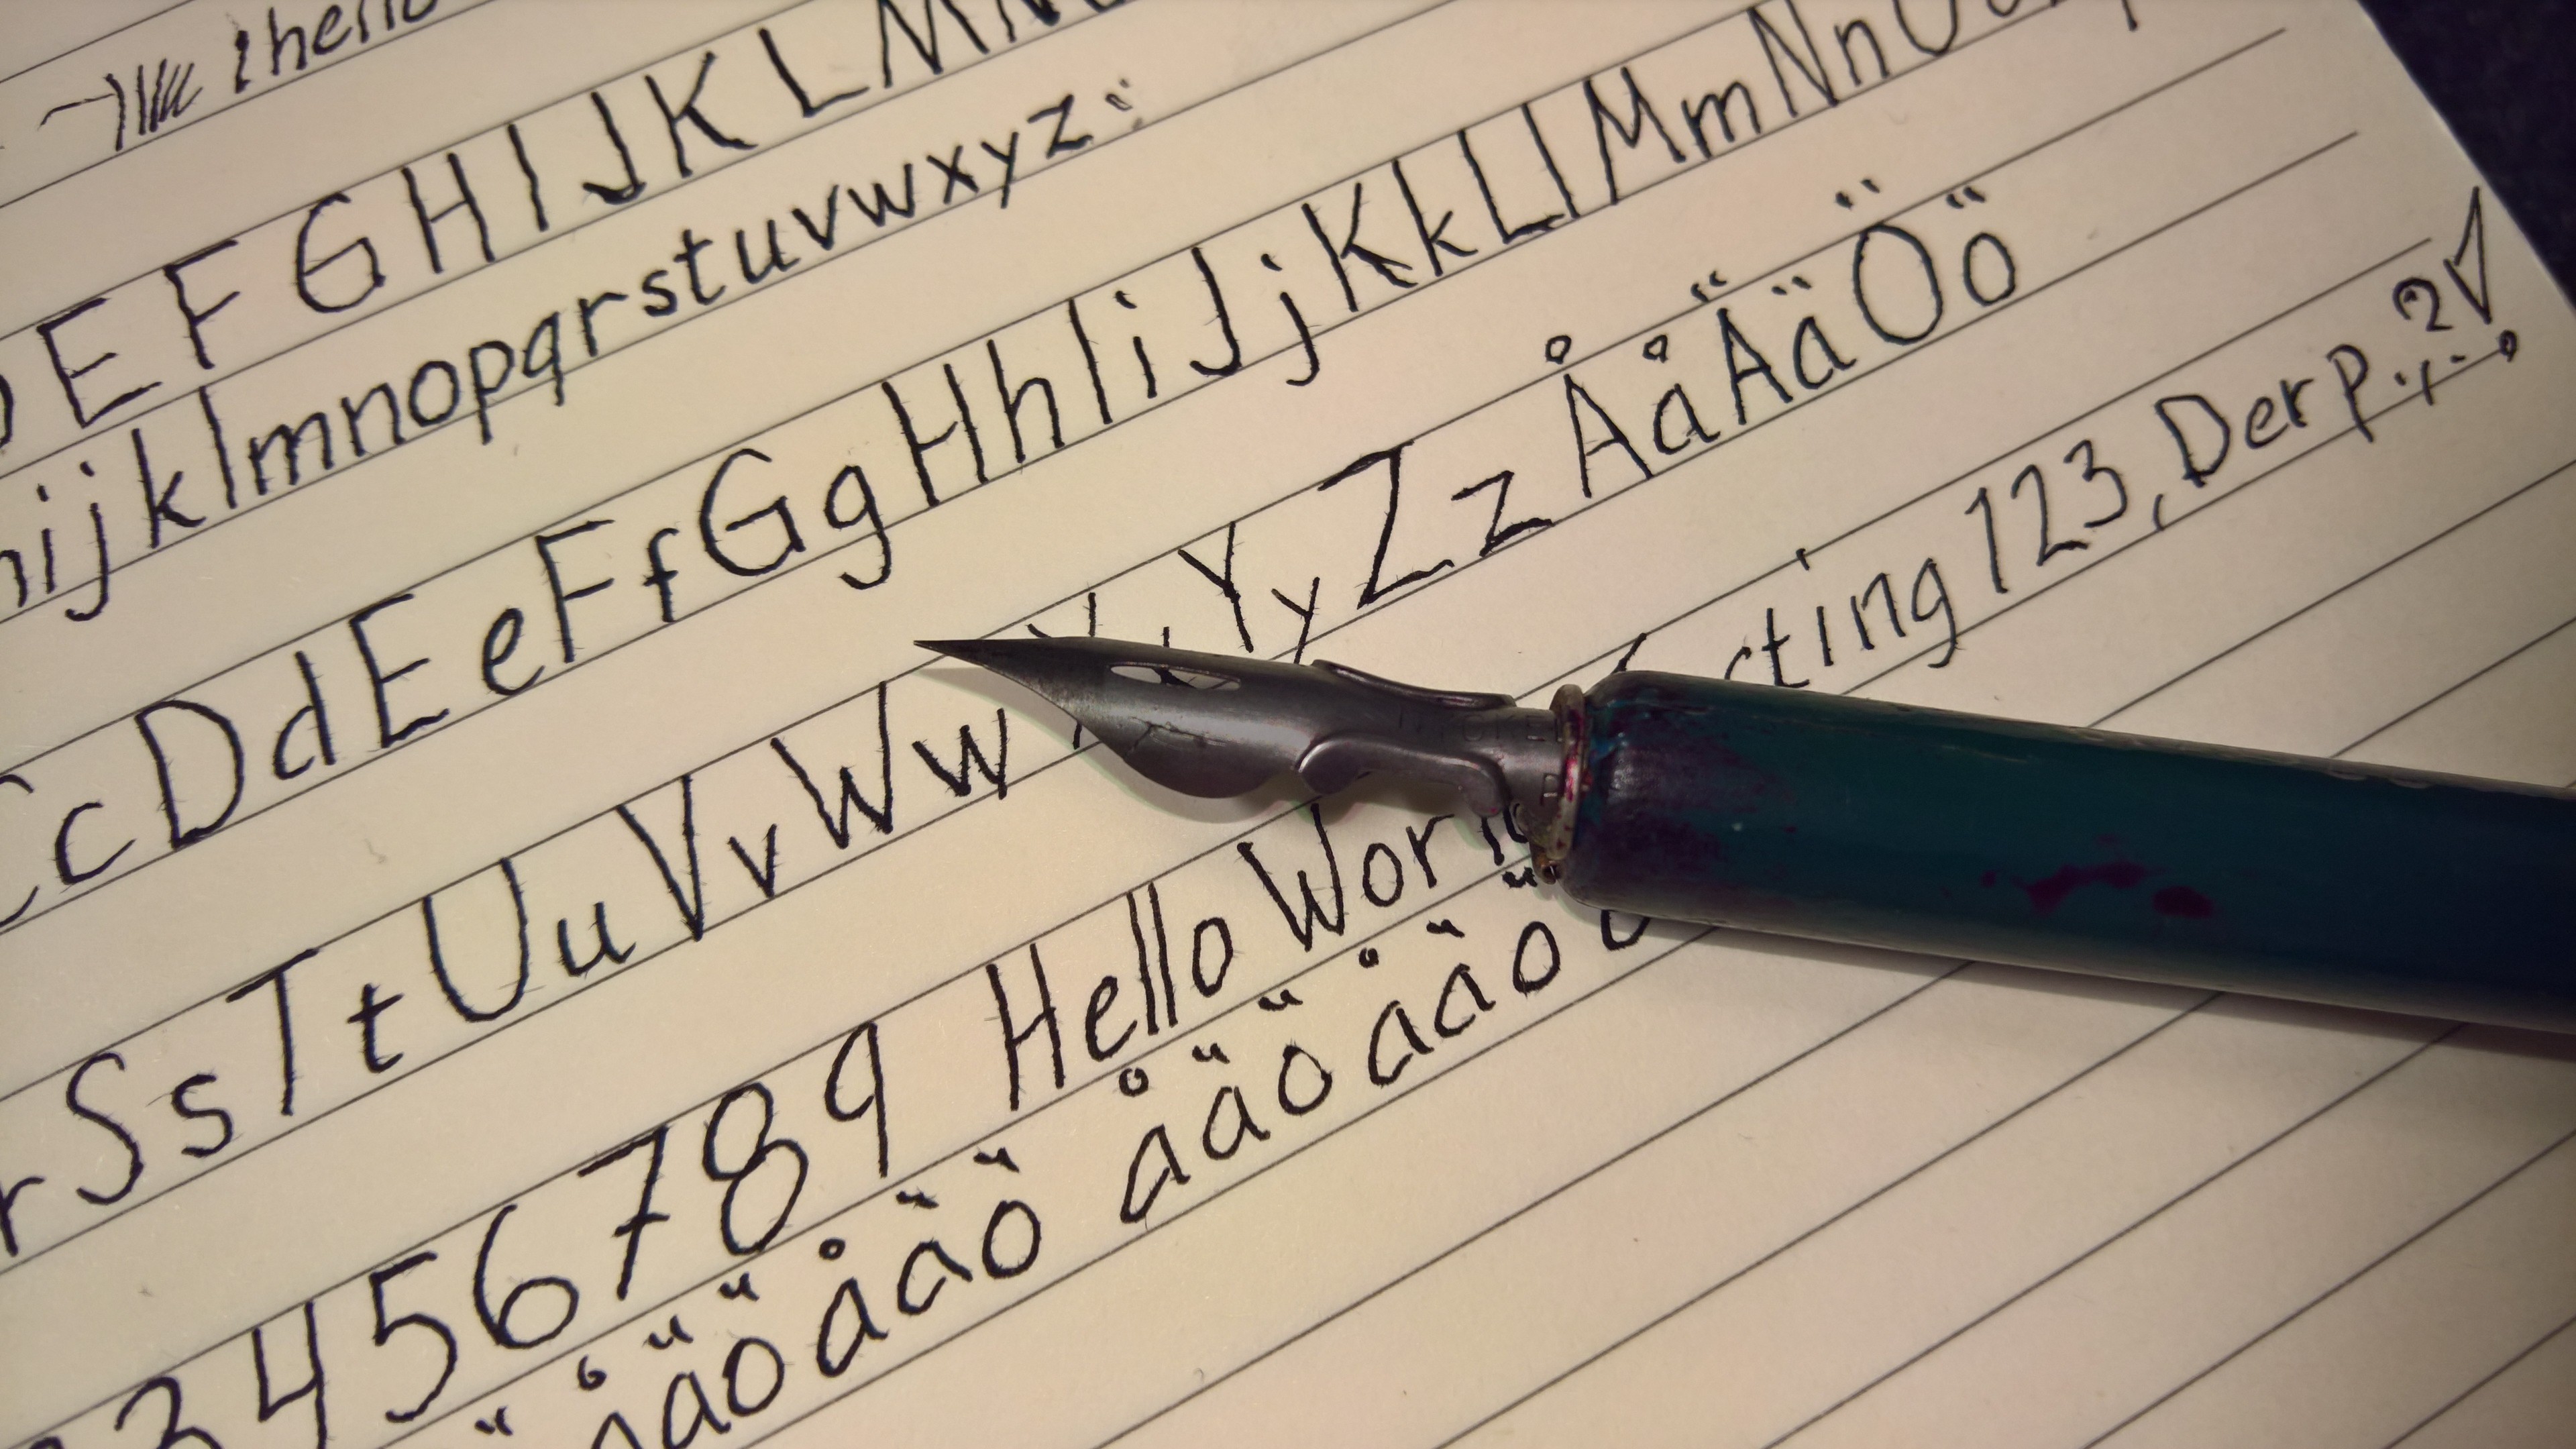 hello
E F G H I J K L M
ijklmnopqrstuvwxyz
Cc Dd Ee Ff Gg Hh Ii Jj Kk Ll Mm Nn
Ss Tt Uu Vv Ww Yy Zz Åå Ää Öö
3 4 5 6 7 8 9 Hello World 123, Derp.,.?
åäö åäö åäö åäö